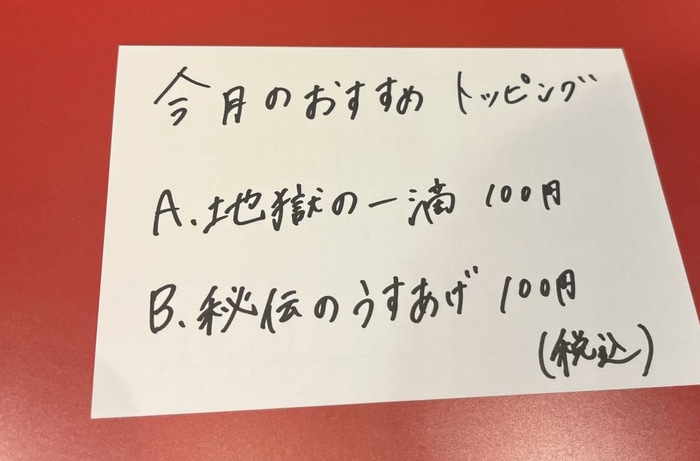 今月のおすすめ トッピング
A. 地獄の一滴 100円
B. 秘伝のうすあげ 100円
(税込)